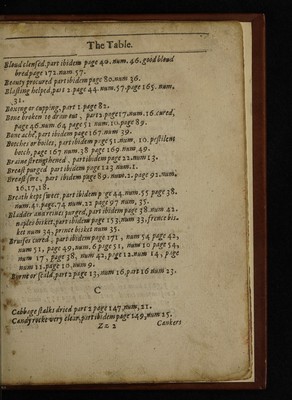 The Table.
Bloud clensed, part ibidem page 40. num. 46. good bloud
bred page 172. num. 57.
Beauty procured part ibidem page 80. num 36.
Blasting helped, part 2. page 44. num. 57. page 165. num.
31.
Boxing or cupping, part 1. page 82.
Bone broken to draw out, part 2 page 17. num. 16. cured,
page 46. num 64 page 51 num. 10. page 89.
Bone ache, part ibidem page 167. num 39.
Botches or boiles, part ibidem page 51. num. 10. pestilent
botch, page 167 num. 38 page 169. num. 49.
Braine strengthened, part ibidem page 22. num 13.
Breast purged part ibidem page 123. num. 1.
Breast sore, part ibidem page 89. num. 2. page 92. num.
16. 17, 18.
Breath kept sweet, part ibidem page 44. num. 55 page 38.
num. 41. page. 74 num. 22 page 97 num, 35.
Bladder and reines purged, part ibidem page 38. num 42.
naples bisket, part ibidem page 153, num 33, prince bis-
ket num 34, prince bisket num 35.
Bruises cured, part ibidem page 171, num 54 page 42,
num 51, page 49. num. 6 page 51, num 10 page 54,
num 17, page 38, num 42, page 12. num 14, page
num 11. page 10. num 9.
Burnt or scald, part 2 page 13, num 16. part 16 num 23.
C
Cabbage stalks dried part 2 page 147, num, 21.
Candy rocke very clear, part ibidem page 149, num 25.
Zz 2 Cankers